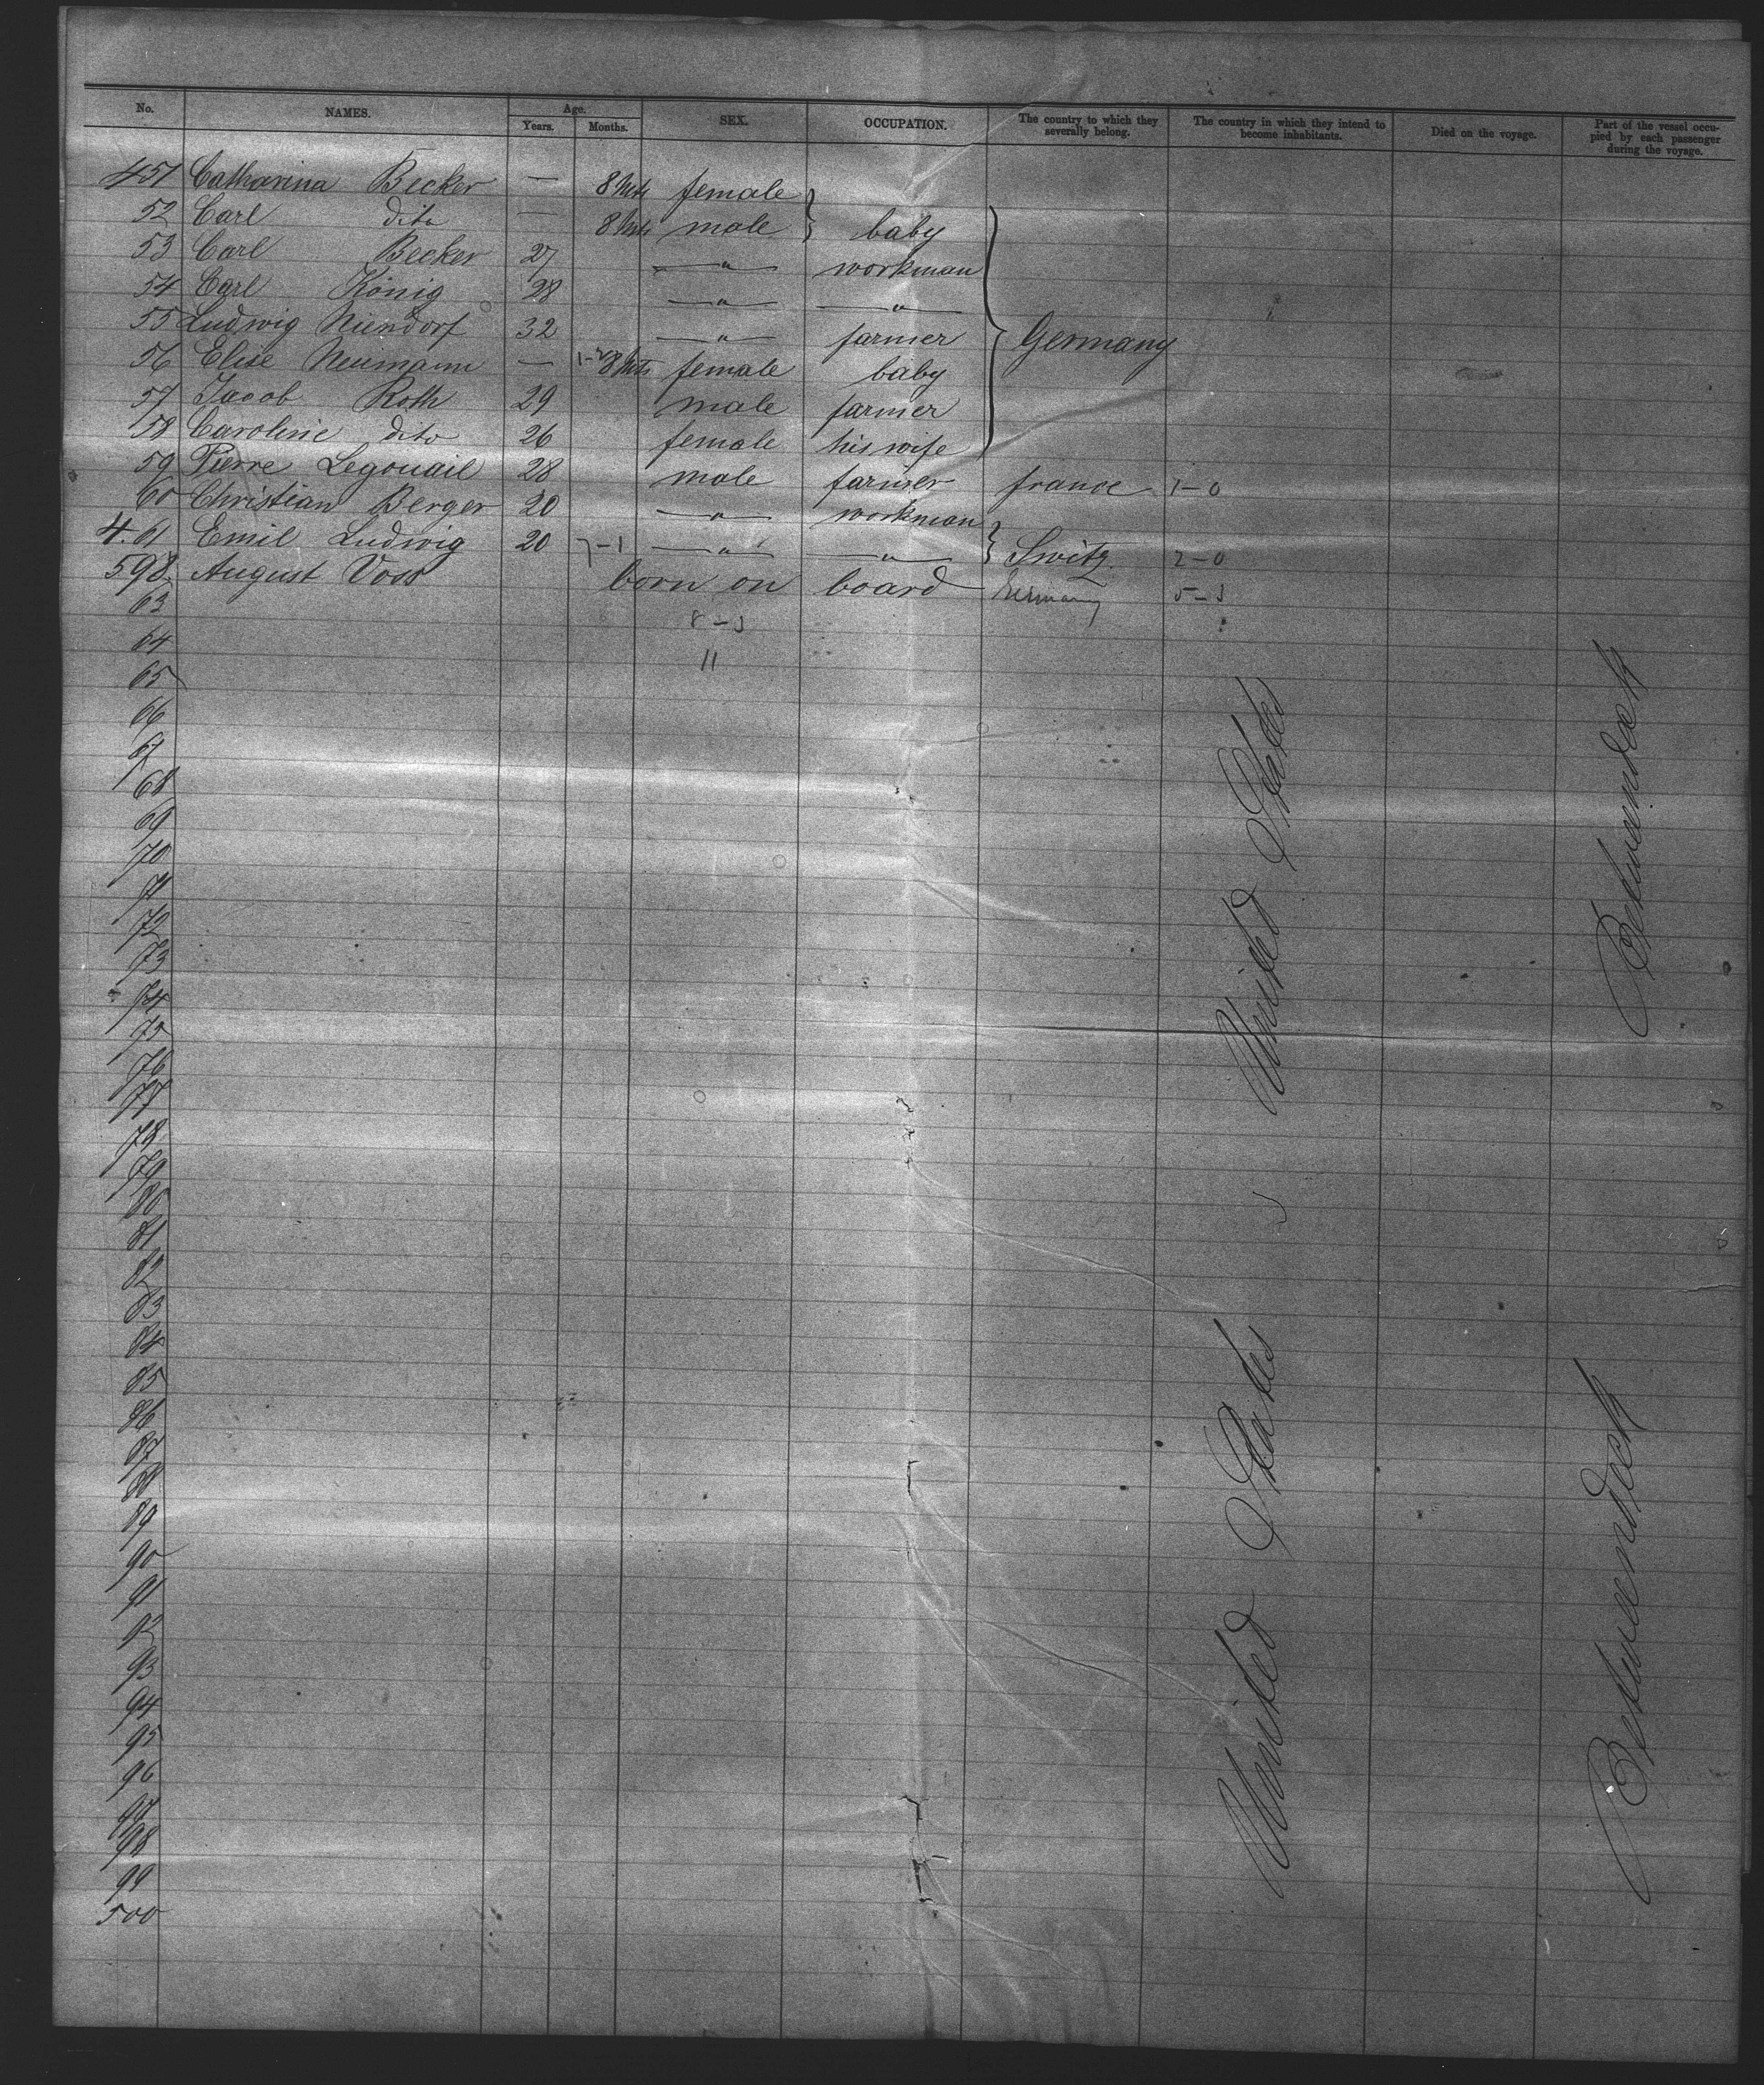 No. NAMES. Age. Years. Months. SEX. OCCUPATION. The country to which they severally belong. The country in which they intend to become inhabitants. Died on the voyage. Part of the vessel occupied by each passenger during the voyage.
451 Catharina Becker — 8 Mts female
52 Carl dito — 8 Mts male } baby
53 Carl Becker 27 —"— workman
54 Carl König 28 —"— —"—
55 Ludwig Niendorf 32 —"— farmer Germany
56 Elise Neumann — 8 Mts female baby
57 Jacob Roth 29 male farmer
58 Caroline dito 26 female his wife
59 Pierre Legouail 28 male farmer france 1-0
60 Christian Berger 20 —"— workman
4.61 Emil Ludwig 20 7-1 —"— —"— } Switz. 2-0
598 August Voss born on board Germany 5-3
63 8-3
64 11
65
66
67
68
69
70
71
72
73
74
75
76
77
78
79
80
81
82
83
84
85
86
87
88
89
90
91
92
93
94
95
96
97
98
99
500
United States
Betweendeck
United States
Betweendeck